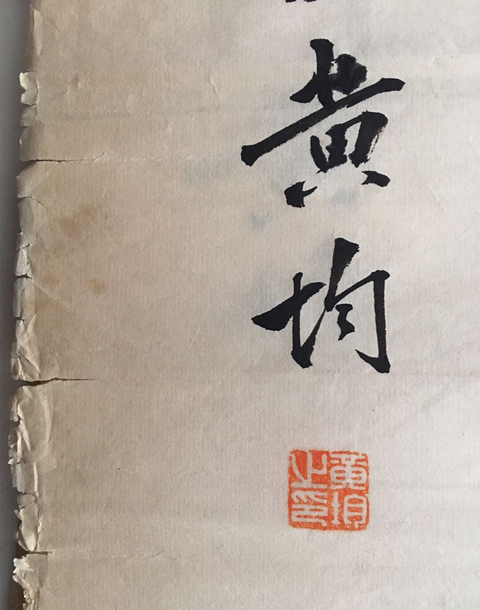 黄均
黄均之印